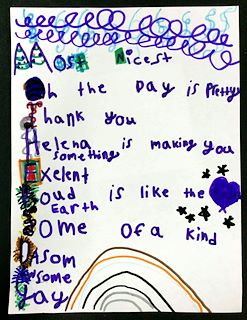 Most Nicest
Oh the Day is Pretty
Thank you
Helena is making you
something
Exelent
oud is like the
Earth
ome of a kind
Asom
some
Yay